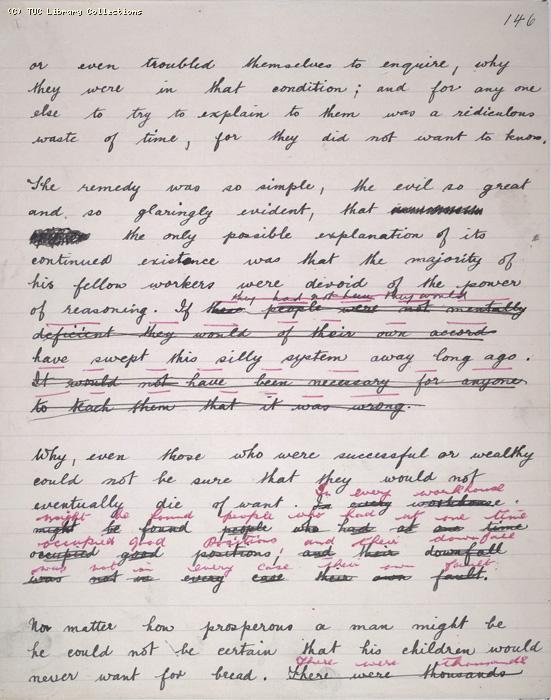 (C) TUC Library Collections
146
or even troubled themselves to enquire, why
they were in that condition; and for any one
else to try to explain to them was a ridiculous
waste of time, for they did not want to know.
The remedy was so simple, the evil so great
and so glaringly evident, that
the only possible explanation of its
continued existence was that the majority of
his fellow workers were devoid of the power
they had not been they would
of reasoning. If these people were not mentally
deficient they would of their own accord
have swept this silly system away long ago.
It would not have been necessary for anyone
to teach them that it was wrong.
Why, even those who were successful or wealthy
could not be sure that they would not
In every workhouse
eventually die of want. In every workhouse
might be found people who had at one time
might be found people who had at one time
occupied good positions and their downfall
occupied good positions; and their downfall
was not in every case their own fault.
was not in every case their own fault.
No matter how prosperous a man might be
he could not be certain that his children would
There were thousands
never want for bread. There were thousands